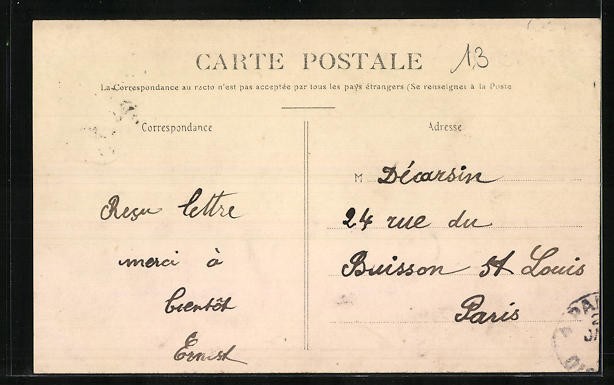 CARTE POSTALE
13
La Correspondance au recto n'est pas acceptée par tous les pays étrangers (Se renseigner à la Poste
Correspondance
Reçu lettre
merci à
bientôt
Ernest
Adresse
M Décarsin
24 rue du
Buisson St Louis
Paris